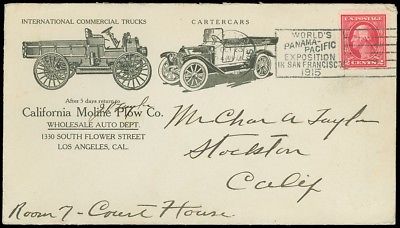 INTERNATIONAL COMMERCIAL TRUCKS
CARTERCARS
WORLD'S
PANAMA-
PACIFIC
EXPOSITION
IN SAN FRANCISCO
1915
2 CENTS 2
After 5 days return to
California Moline Plow Co.
WHOLESALE AUTO DEPT.
1330 SOUTH FLOWER STREET
LOS ANGELES, CAL.
Mr Chas A Taylor
Stockton
Calif
Room 7 - Court House